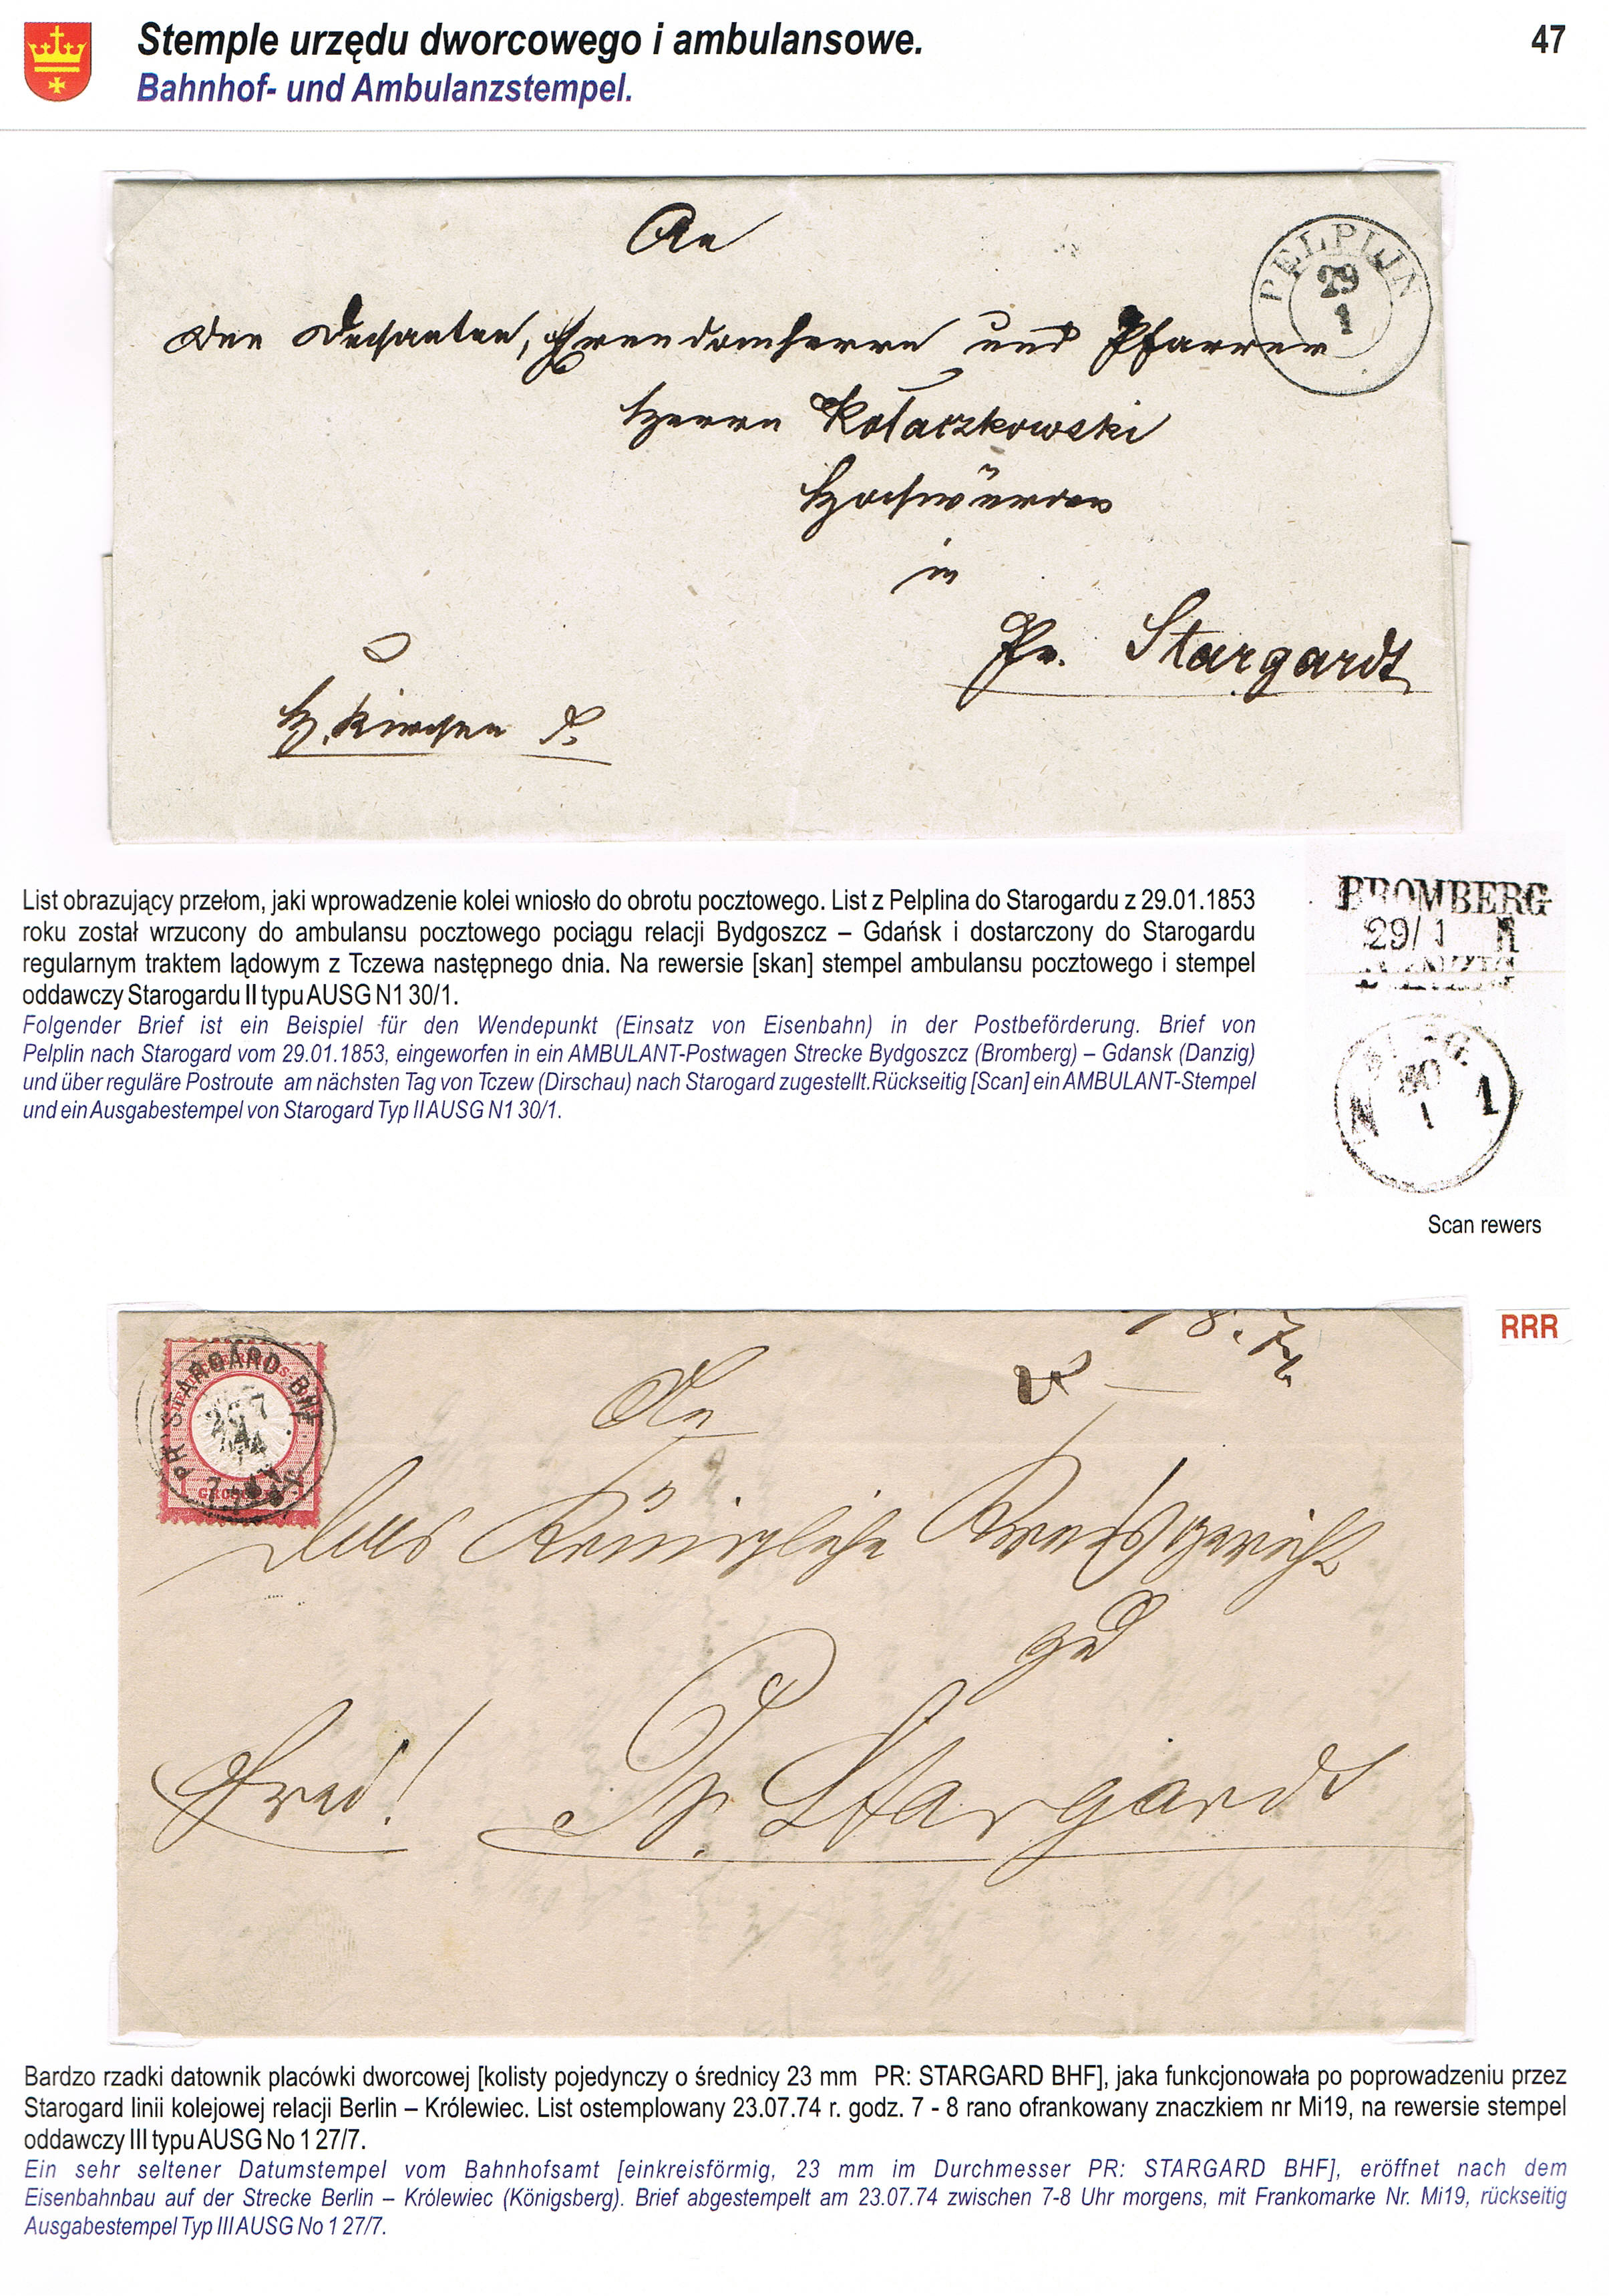 Stemple urzędu dworcowego i ambulansowe.
47
Bahnhof- und Ambulanzstempel.
An
PELPLIN
29
1
den Dechanten, Ehrendomherrn und Pfarrer
Herrn Kołaczkowski
Hochwürden
in
Pr. Stargardt
H. Kirchen S.
List obrazujący przełom, jaki wprowadzenie kolei wniosło do obrotu pocztowego. List z Pelplina do Starogardu z 29.01.1853
roku został wrzucony do ambulansu pocztowego pociągu relacji Bydgoszcz – Gdańsk i dostarczony do Starogardu
regularnym traktem lądowym z Tczewa następnego dnia. Na rewersie [skan] stempel ambulansu pocztowego i stempel
oddawczy Starogardu II typu AUSG N1 30/1.
Folgender Brief ist ein Beispiel für den Wendepunkt (Einsatz von Eisenbahn) in der Postbeförderung. Brief von
Pelplin nach Starogard vom 29.01.1853, eingeworfen in ein AMBULANT-Postwagen Strecke Bydgoszcz (Bromberg) – Gdansk (Danzig)
und über reguläre Postroute am nächsten Tag von Tczew (Dirschau) nach Starogard zugestellt.Rückseitig [Scan] ein AMBULANT-Stempel
und ein Ausgabestempel von Starogard Typ II AUSG N1 30/1.
BROMBERG
29/1 II
DANZIG
AUSG.
30
N 1 1
Scan rewers
RRR
PR: STARGARD BHF
7
74
GROSCHEN
An
Das Königliche Kreisgericht
zu
Pr. Stargardt
Frei!
Bardzo rzadki datownik placówki dworcowej [kolisty pojedynczy o średnicy 23 mm PR: STARGARD BHF], jaka funkcjonowała po poprowadzeniu przez
Starogard linii kolejowej relacji Berlin – Królewiec. List ostemplowany 23.07.74 r. godz. 7 - 8 rano ofrankowany znaczkiem nr Mi19, na rewersie stempel
oddawczy III typu AUSG No 1 27/7.
Ein sehr seltener Datumstempel vom Bahnhofsamt [einkreisförmig, 23 mm im Durchmesser PR: STARGARD BHF], eröffnet nach dem
Eisenbahnbau auf der Strecke Berlin – Królewiec (Königsberg). Brief abgestempelt am 23.07.74 zwischen 7-8 Uhr morgens, mit Frankomarke Nr. Mi19, rückseitig
Ausgabestempel Typ III AUSG No 1 27/7.